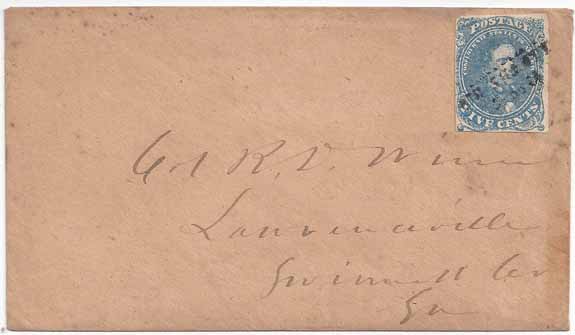 POSTAGE
CONFEDERATE STATES OF AMERICA
FIVE CENTS
Col R. D. Winn
Lawrenceville
Gwinnett Co
Ga